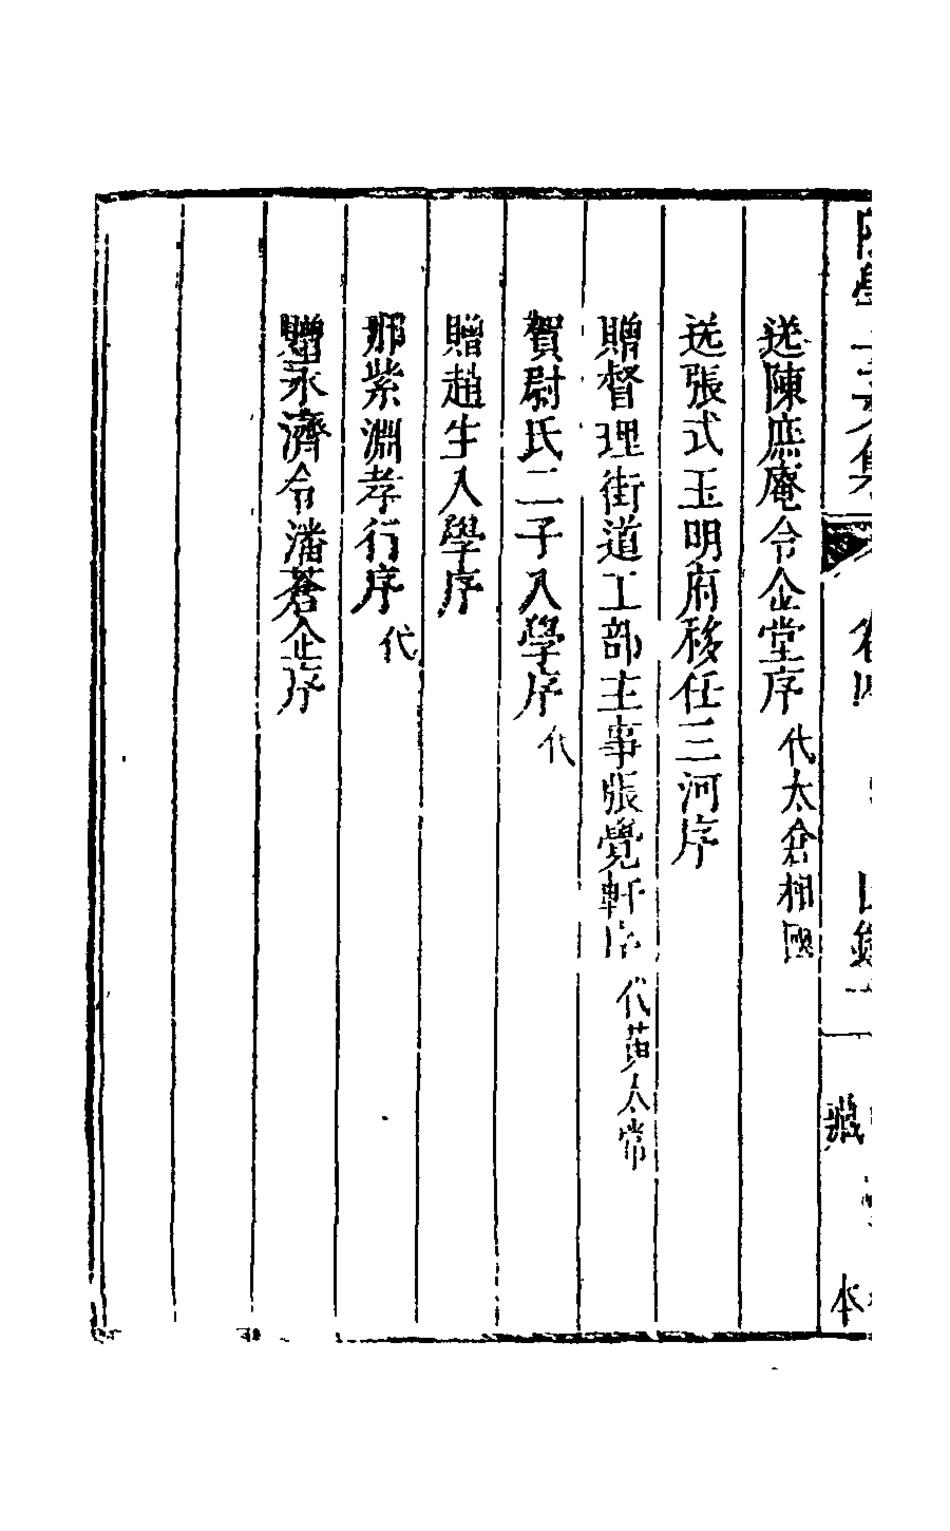 送陳庶庵令企堂序 代太倉相國
送張式玉明府移任三河序
贈督理街道工部主事張覺軒序 代黃太常
賀尉氏二子入學序 代
贈趙生入學序
邢紫淵孝行序 代
贈永濟令潘蒼企序
目錄
藏
本